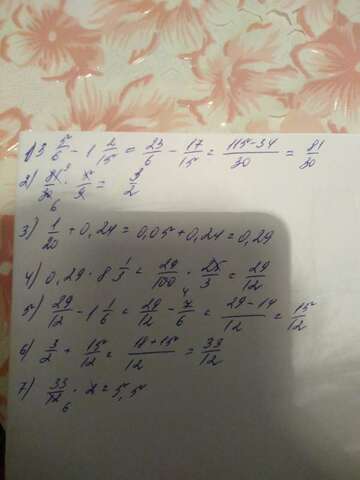 1) 3 5/6 - 1 2/15 = 23/6 - 17/15 = 115-34/30 = 81/30
2) 81/30 · 5/9 = 9/2
6
3) 1/20 + 0,24 = 0,05 + 0,24 = 0,29
4) 0,29 · 8 1/3 = 29/100 · 25/3 = 29/12
4
5) 29/12 - 1 1/6 = 29/12 - 7/6 = 29-14/12 = 15/12
6) 3/2 + 15/12 = 18+15/12 = 33/12
7) 33/12 · 2 = 5,5
6